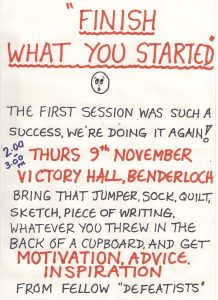 "FINISH
WHAT YOU STARTED"
THE FIRST SESSION WAS SUCH A
SUCCESS, WE'RE DOING IT AGAIN!
2.00
3.00 PM
THURS 9th NOVEMBER
VICTORY HALL, BENDERLOCH
BRING THAT JUMPER, SOCK, QUILT,
SKETCH, PIECE OF WRITING,
WHATEVER YOU THREW IN THE
BACK OF A CUPBOARD, AND GET
MOTIVATION, ADVICE,
INSPIRATION
FROM FELLOW "DEFEATISTS"